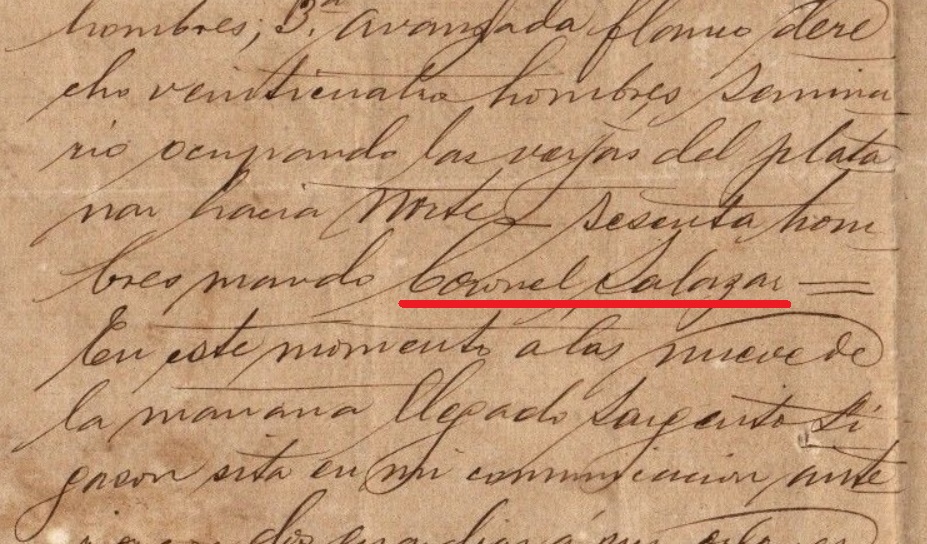 hombres; 3.ª avanzada flanco dere
cho veinticuatro hombres Semina
rio ocupando las verjas del plata
nar hacia Norte, sesenta hom
bres mando Coronel Salazar =
En este momento a las nueve de
la mañana llegado Sargento Li
gason sita en mi comunicacion ante